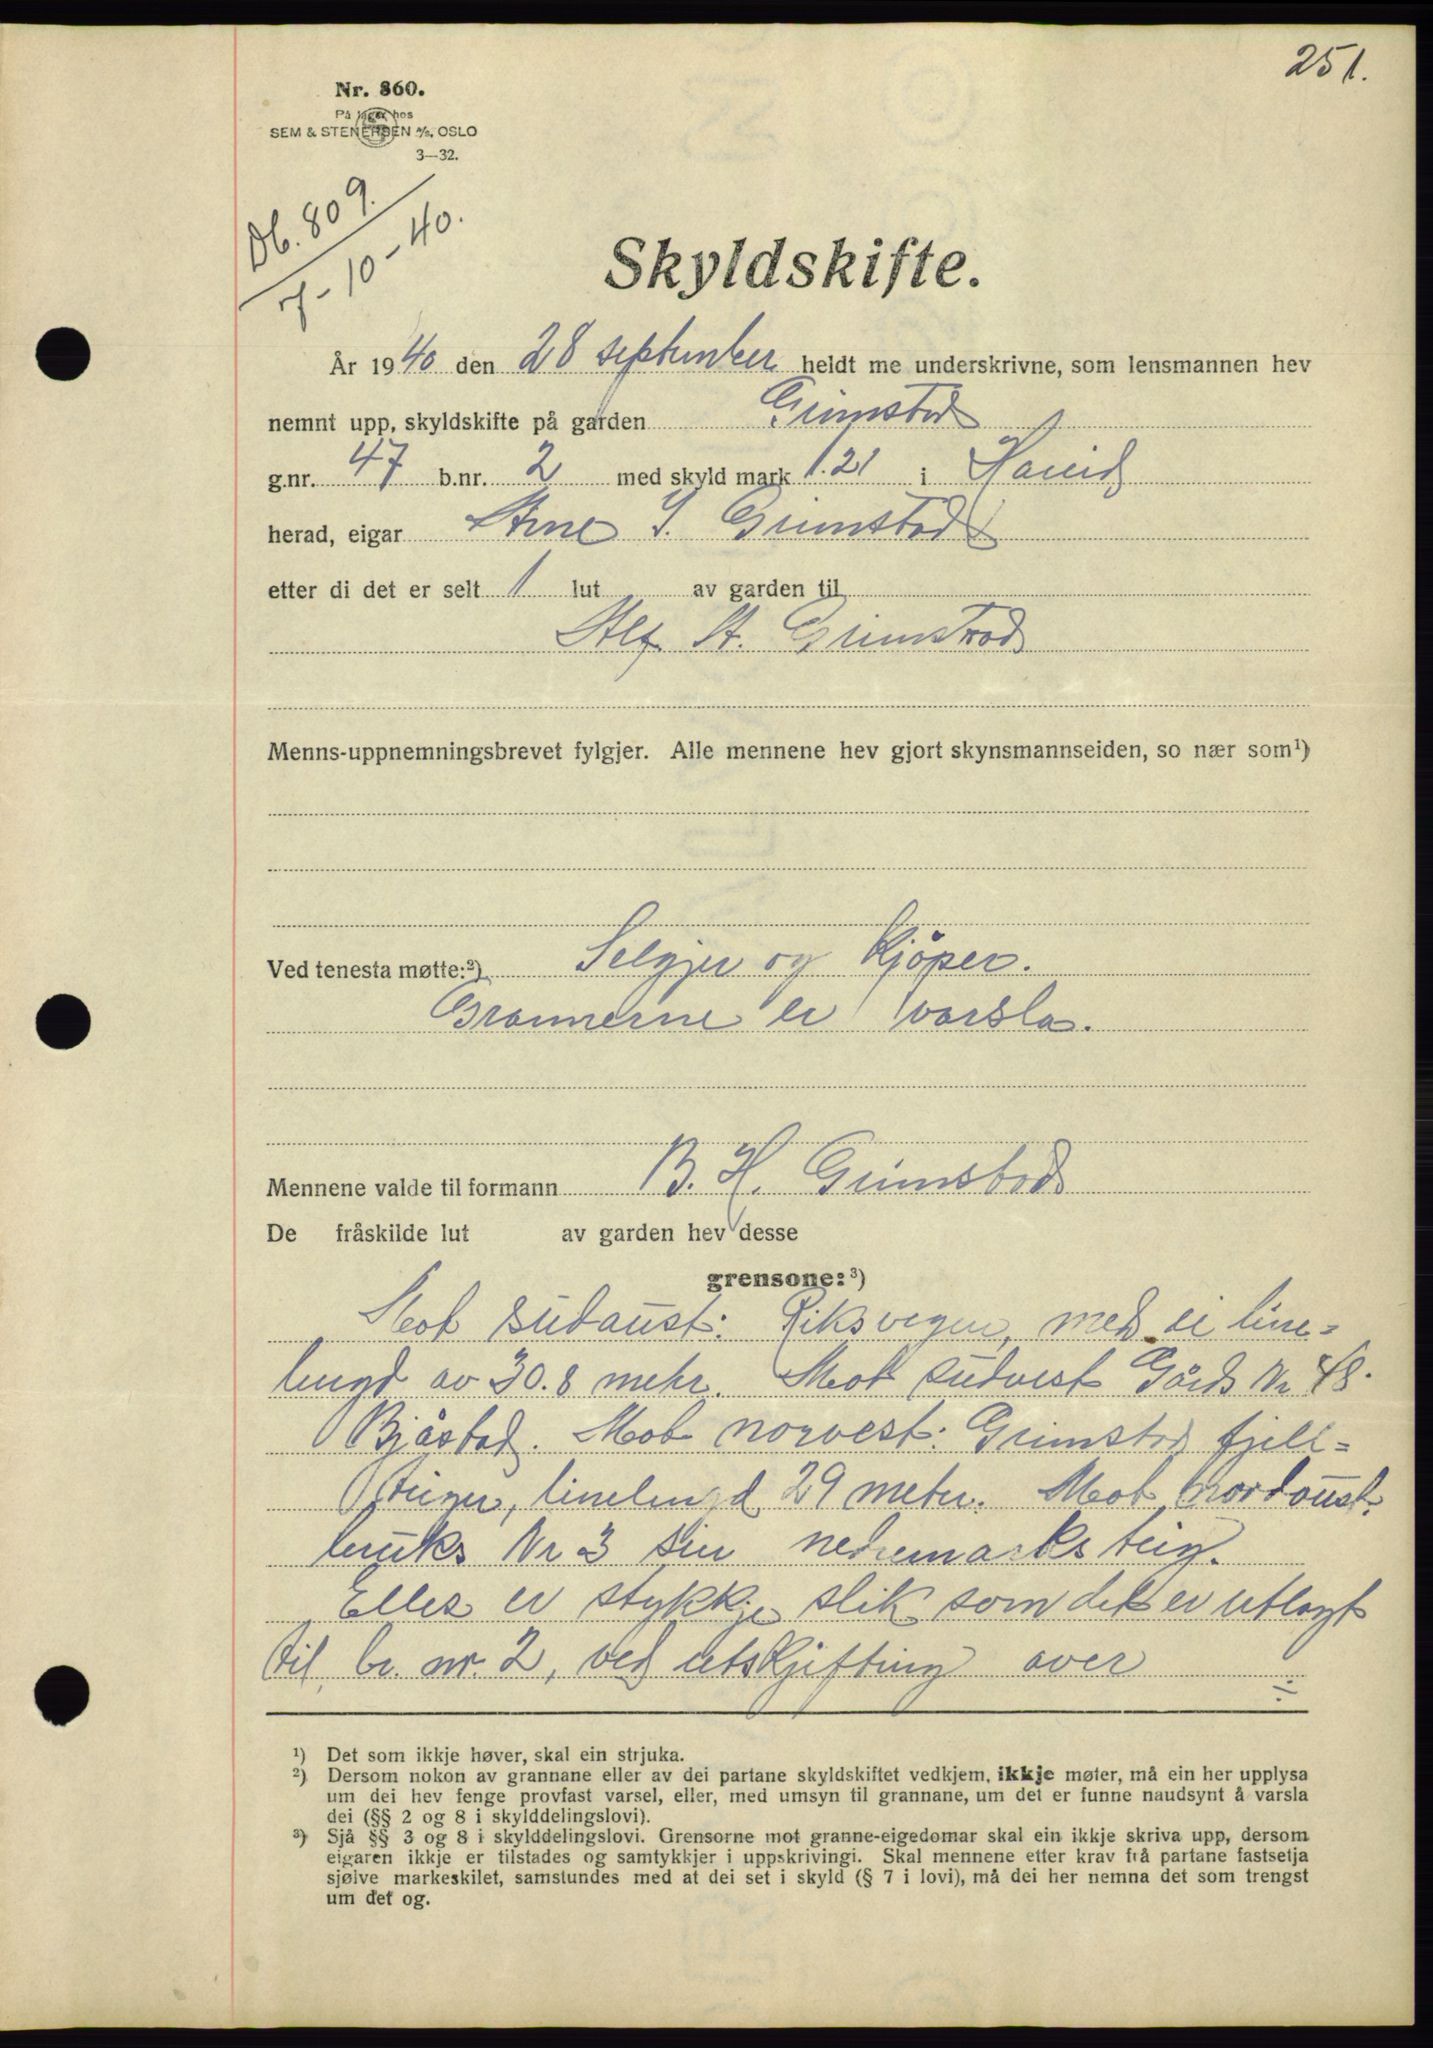 251.
Nr. 860.
På lager hos
SEM & STENERSEN A/S, OSLO
3—32.
Db. 809.
7-10-40.
Skyldskifte.
År 1940 den 28 september heldt me underskrivne, som lensmannen hev
nemnt upp, skyldskifte på garden Grimstad
g.nr. 47 b.nr. 2 med skyld mark 1.21 i Hareid
herad, eigar Arne I. Grimstad
etter di det er selt 1 lut av garden til
Alf A. Grimstad
Menns-uppnemningsbrevet fylgjer. Alle mennene hev gjort skynsmannseiden, so nær som¹)
Ved tenesta møtte:²) Selgjer og Kjöper.
Grannerne er varsla.
Mennene valde til formann B. H. Grimstad
De fråskilde lut av garden hev desse
grensone:³)
Mot südaust: Riksvegen, med ei line=
lengd av 30.8 meter. Mot südvest Gårds Nr 48.
Bjåstad. Mot norvest: Grimstad fjell=
teiger, linelengd 29 meter. Mot nordoust.
bruks Nr 3 sin nedremarks teig.
Elles er stykkje slik som det er utlagt
til br. nr. 2, ved utskjifting over
÷
¹) Det som ikkje høver, skal ein strjuka.
²) Dersom nokon av grannane eller av dei partane skyldskiftet vedkjem, ikkje møter, må ein her upplysa
um dei hev fenge provfast varsel, eller, med umsyn til grannane, um det er funne naudsynt å varsla
dei (§§ 2 og 8 i skylddelingslovi).
³) Sjå §§ 3 og 8 i skylddelingslovi. Grensorne mot granne-eigedomar skal ein ikkje skriva upp, dersom
eigaren ikkje er tilstades og samtykkjer i uppskrivingi. Skal mennene etter krav frå partane fastsetja
sjølve markeskilet, samstundes med at dei set i skyld (§ 7 i lovi), må dei her nemna det som trengst
um det og.